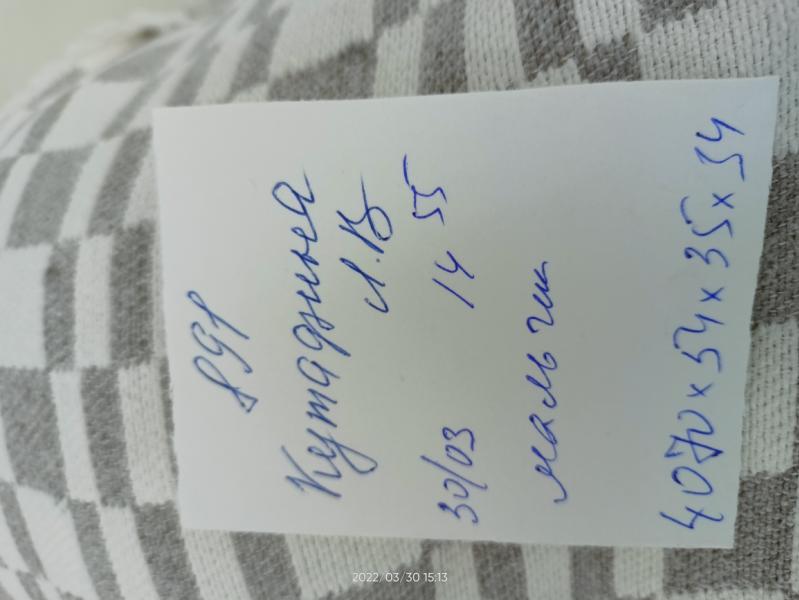 891
Кутадзиева
Л.В
30/03 14 55
мальчик
4070 x 54 x 35 x 34
2022/03/30 15:13